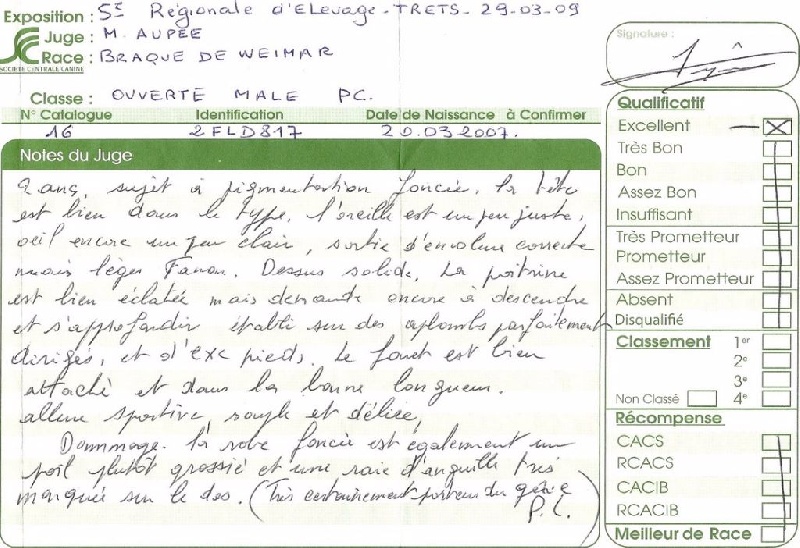 Exposition : 5e Régionale d'Elevage - TRETS - 29-03-09
Juge : M. AUPÉE
Race : BRAQUE DE WEIMAR
SOCIETE CENTRALE CANINE
Classe : OUVERTE MALE PC.
N° Catalogue Identification Date de Naissance à Confirmer
16 2FLD817 20.03.2007.
Notes du Juge
2 ans, sujet à pigmentation foncée, la tête
est bien dans le type, l'oreille est un peu juste,
oeil encore un peu clair, sortie d'encolure correcte
mais léger Fanon. Dessus solide, La poitrine
est bien éclatée mais demande encore à descendre
et s'approfondir, établi sur des aplombs parfaitement
dirigés, et d'exc pieds. Le fouet est bien
attaché et dans la bonne longueur.
allure sportive, souple et déliée,
Dommage. la robe foncée est également un
poil plutôt grossié et une raie d'anguille très
marquée sur le dos. (Très certainement porteur du gène
P.L.
Signature :
Qualificatif
Excellent
Très Bon
Bon
Assez Bon
Insuffisant
Très Prometteur
Prometteur
Assez Prometteur
Absent
Disqualifié
Classement 1er
2e
3e
Non Classé 4e
Récompense
CACS
RCACS
CACIB
RCACIB
Meilleur de Race